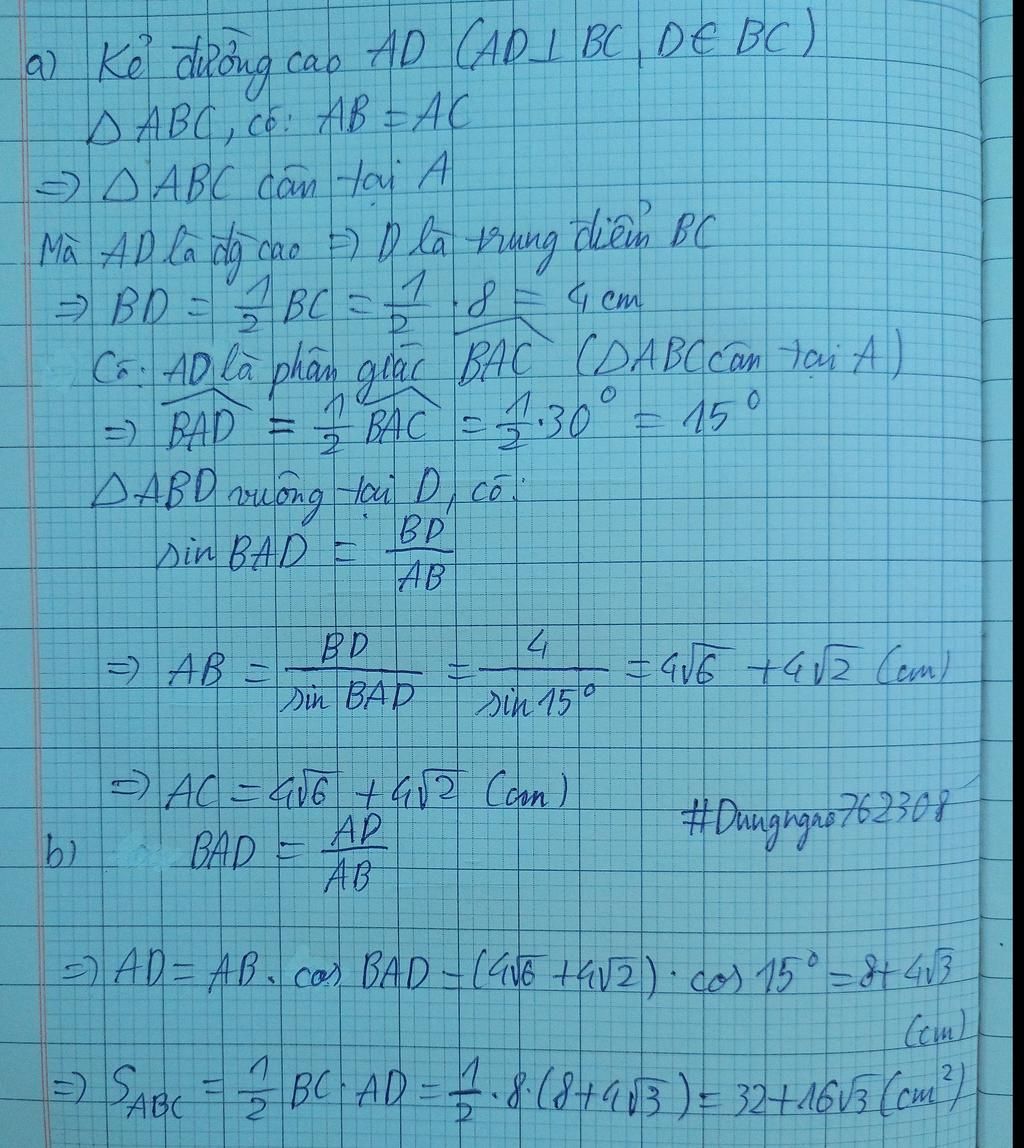 a) Kẻ đường cao AD (AD ⊥ BC, D ∈ BC)
△ ABC, có: AB = AC
=> △ ABC cân tại A
Mà AD là đg cao => D là trung điểm BC
=> BD = 1/2 BC = 1/2 . 8 = 4 cm
Có: AD là phân giác \widehat{BAC} (△ABC cân tại A)
=> \widehat{BAD} = 1/2 \widehat{BAC} = 1/2 . 30° = 15°
△ABD vuông tại D, có:
sin BAD = BD/AB
=> AB = BD/sin BAD = 4/sin 15° = 4√6 + 4√2 (cm)
=> AC = 4√6 + 4√2 (cm)
#Dungngao762308
b) BAD = AD/AB
=> AD = AB . cos BAD = (4√6 + 4√2) . cos 15° = 8 + 4√3
(cm)
=> S_ABC = 1/2 BC . AD = 1/2 . 8 . (8 + 4√3) = 32 + 16√3 (cm²)